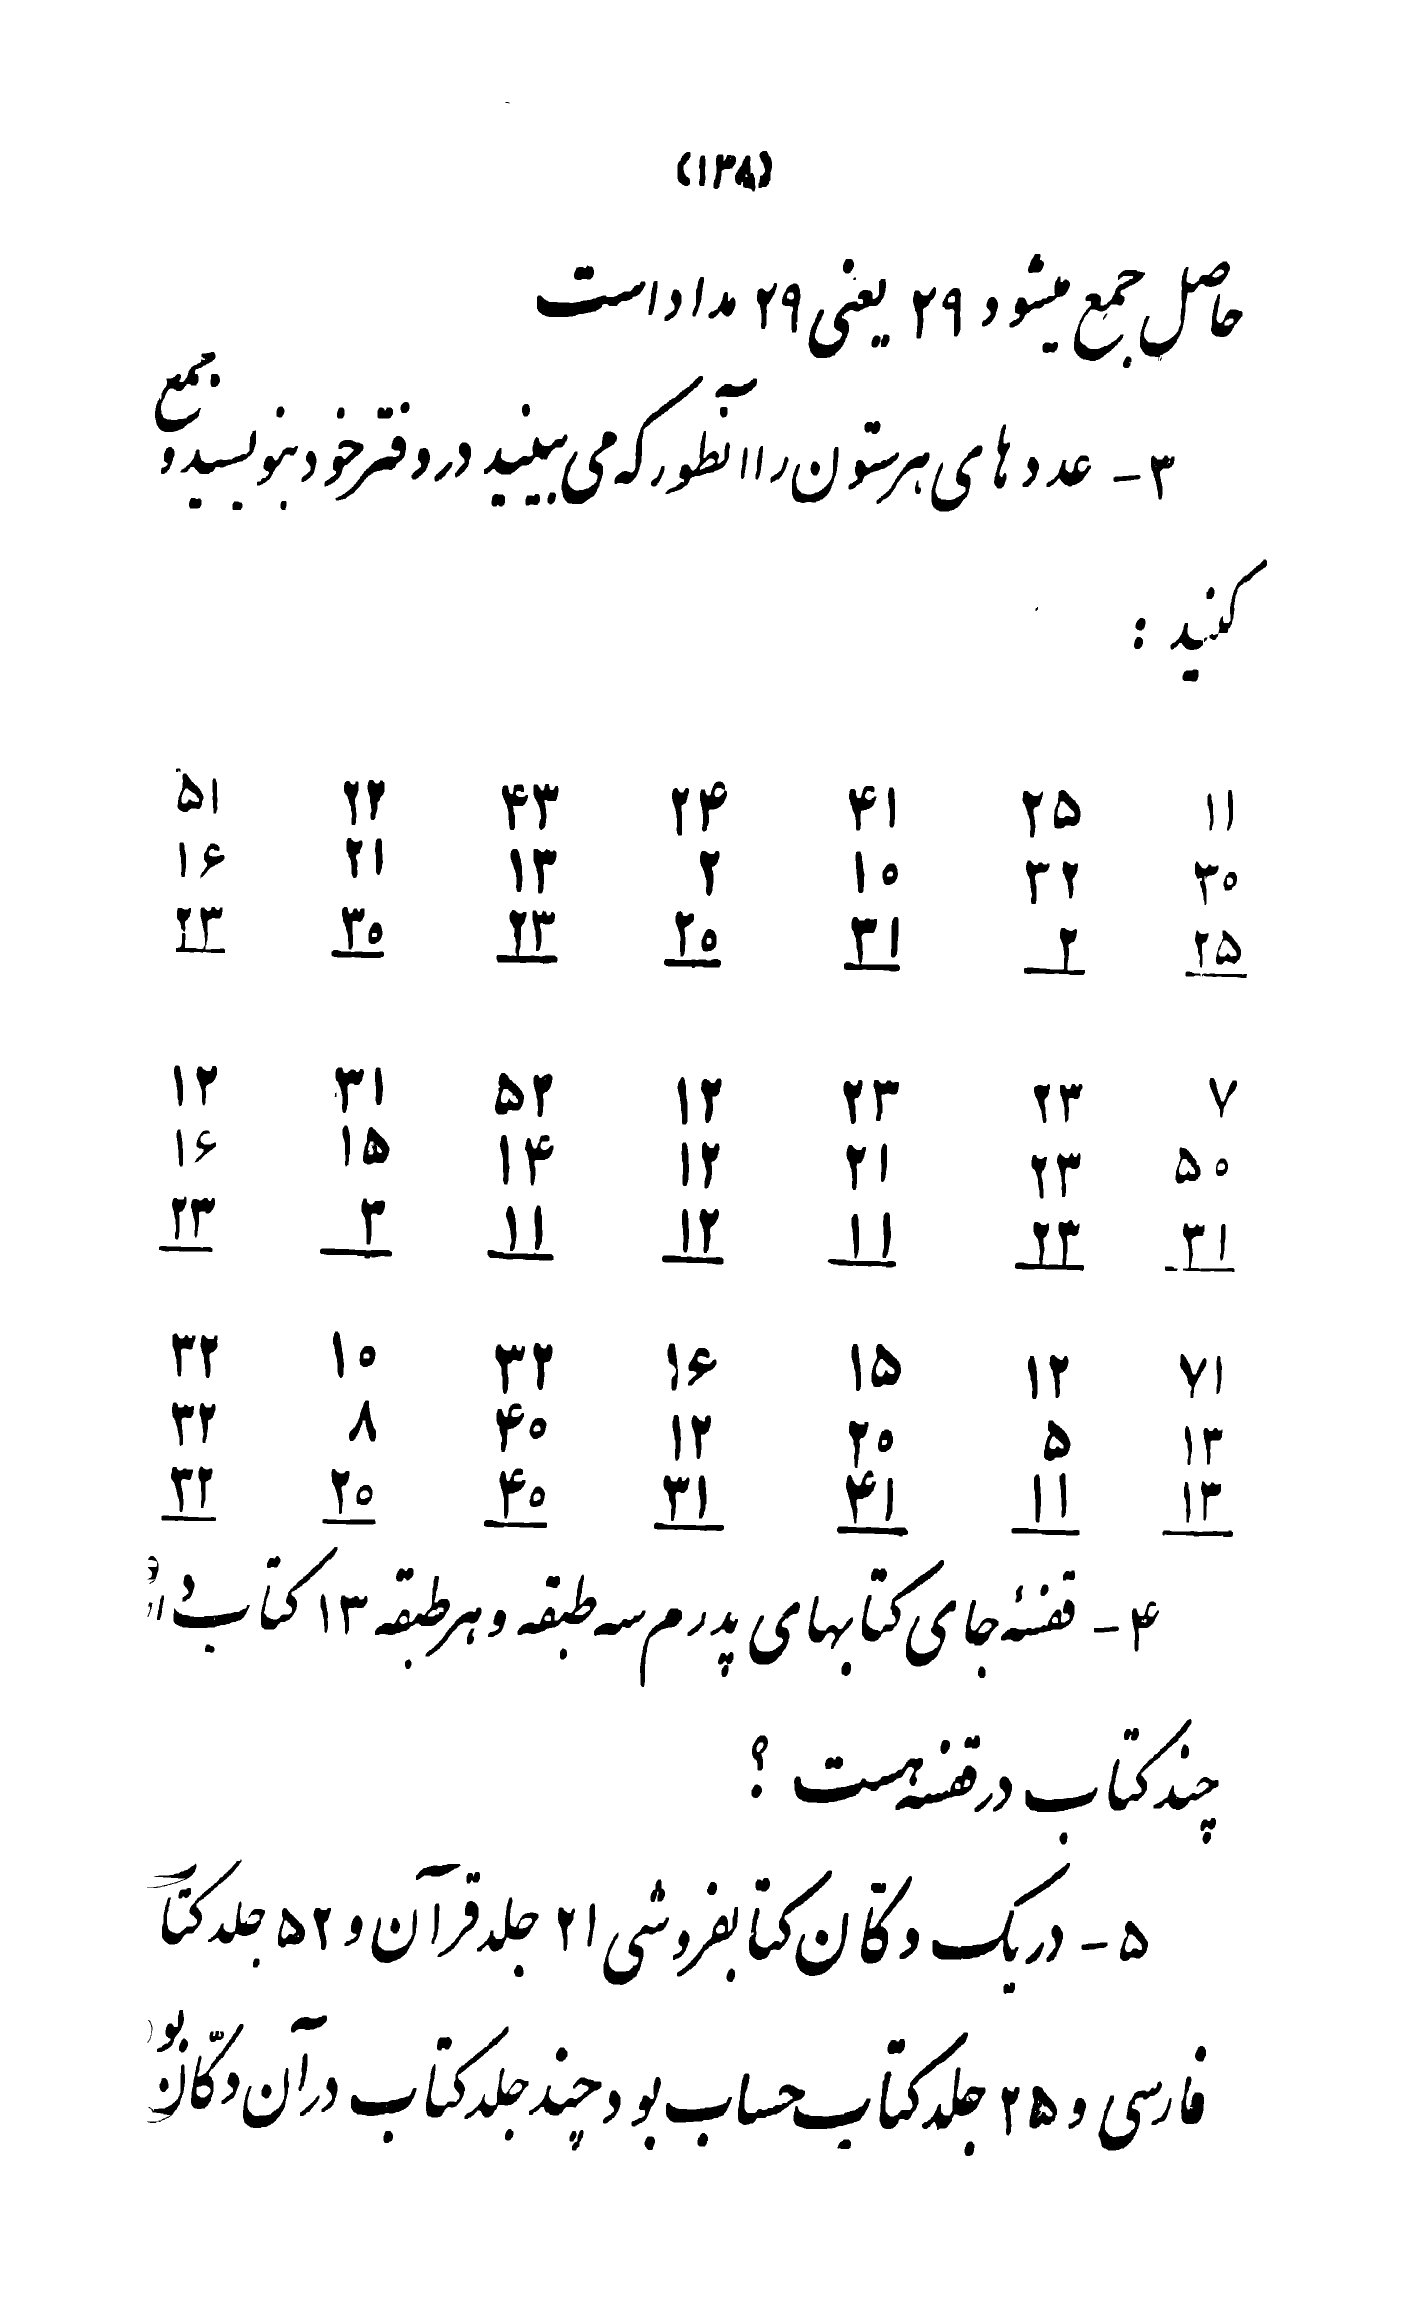 (۱۳۸)
حاصل جمع میشود ۲۹ یعنی ۲۹ مداد است
۳- عدد های هر ستون را آنطور که می بینید در دفتر خود بنویسید و جمع
کنید :
۱۱ ۲۵ ۴۱ ۲۴ ۴۳ ۲۲ ۵۱
۳۰ ۳۲ ۱۰ ۲ ۱۳ ۲۱ ۱۶
۲۵ ۲ ۳۱ ۲۰ ۲۳ ۳۰ ۲۳
۷ ۲۳ ۲۳ ۱۲ ۵۲ ۳۱ ۱۲
۵۰ ۲۳ ۲۱ ۱۲ ۱۴ ۱۵ ۱۶
۳۱ ۲۳ ۱۱ ۱۲ ۱۱ ۳ ۲۳
۷۱ ۱۲ ۱۵ ۱۶ ۳۲ ۱۰ ۳۲
۱۳ ۵ ۲۰ ۱۲ ۴۰ ۸ ۳۲
۱۳ ۱۱ ۴۱ ۳۱ ۴۰ ۲۰ ۳۲
۴- قفسهٔ جای کتابهای پدرم سه طبقه و هر طبقه ۱۳ کتاب
چند کتاب در قفسه هست ؟
۵- در یک دکّان کتابفروشی ۲۱ جلد قرآن و ۵۲ جلد کتا
فارسی و ۲۵ جلد کتاب حساب بود چند جلد کتاب در آن دکّان بو